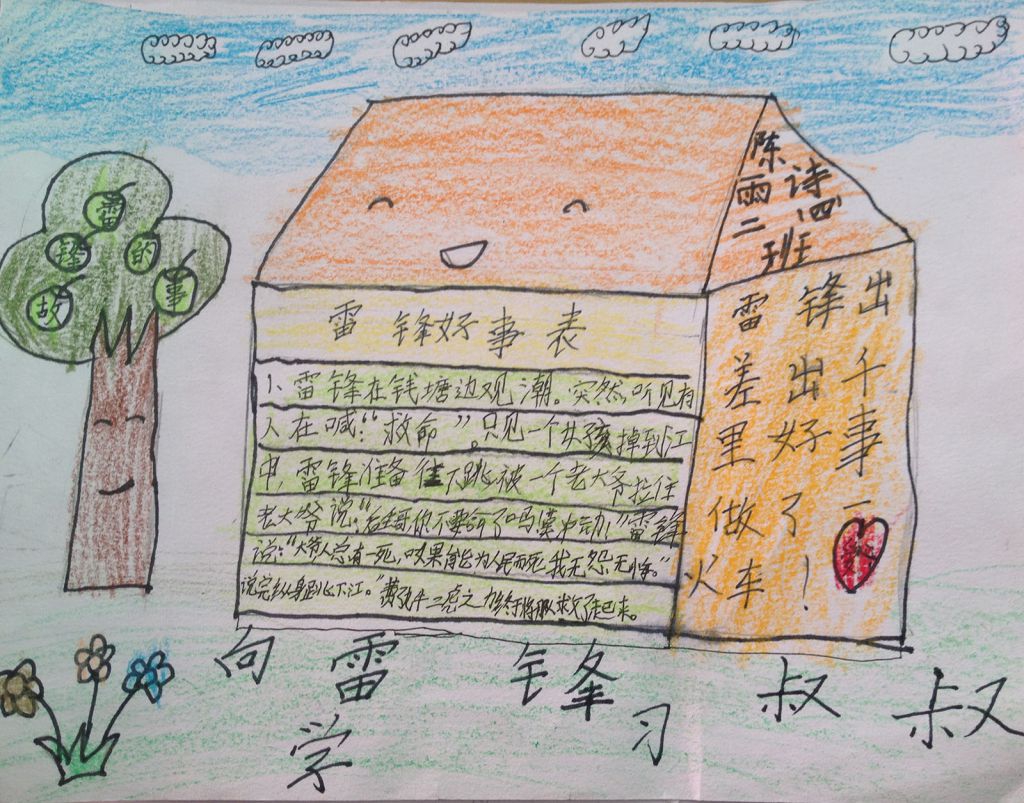 雷
锋 的
故 事
陈 诗
雨 四
二 班
雷锋好事表
1、雷锋在钱塘边观潮。突然听见有
人在喊:“救命”。只见一个女孩掉到江
中,雷锋准备往下跳被一个老大爷拉住
老大爷说:“你不要命了吗莫冲动!”雷锋
说:“大爷人总有一死,如果能为人民而死,我无怨无悔。”
说完纵身跳下江。“费了九牛二虎之力终于将
救了起来。
雷锋出
差出千
里好事
做了一
火车!
向雷锋叔叔
学习